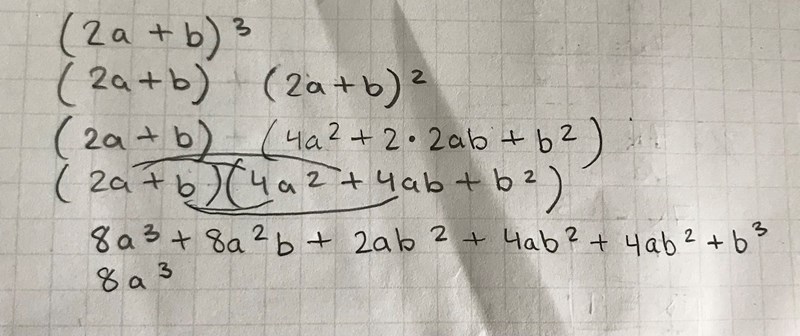 (2a + b)³
(2a+b) (2a+b)²
(2a + b) (4a² + 2 · 2ab + b²)
(2a+b)(4a² + 4ab + b²)
8a³ + 8a²b + 2ab² + 4ab² + 4ab² + b³
8a³